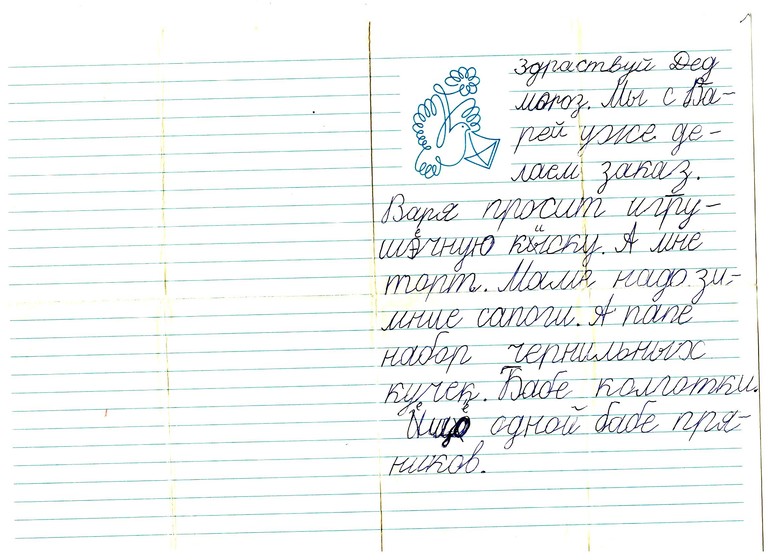 здраствуй Дед
мороз. Мы с Ва-
рей уже де-
лаем заказ.
Варя просит игру-
шечную киску. А мне
торт. Маме надо зи-
мние сапоги. А папе
набор чернильных
кучек. Бабе колготки.
Ещё одной бабе пря-
ников.